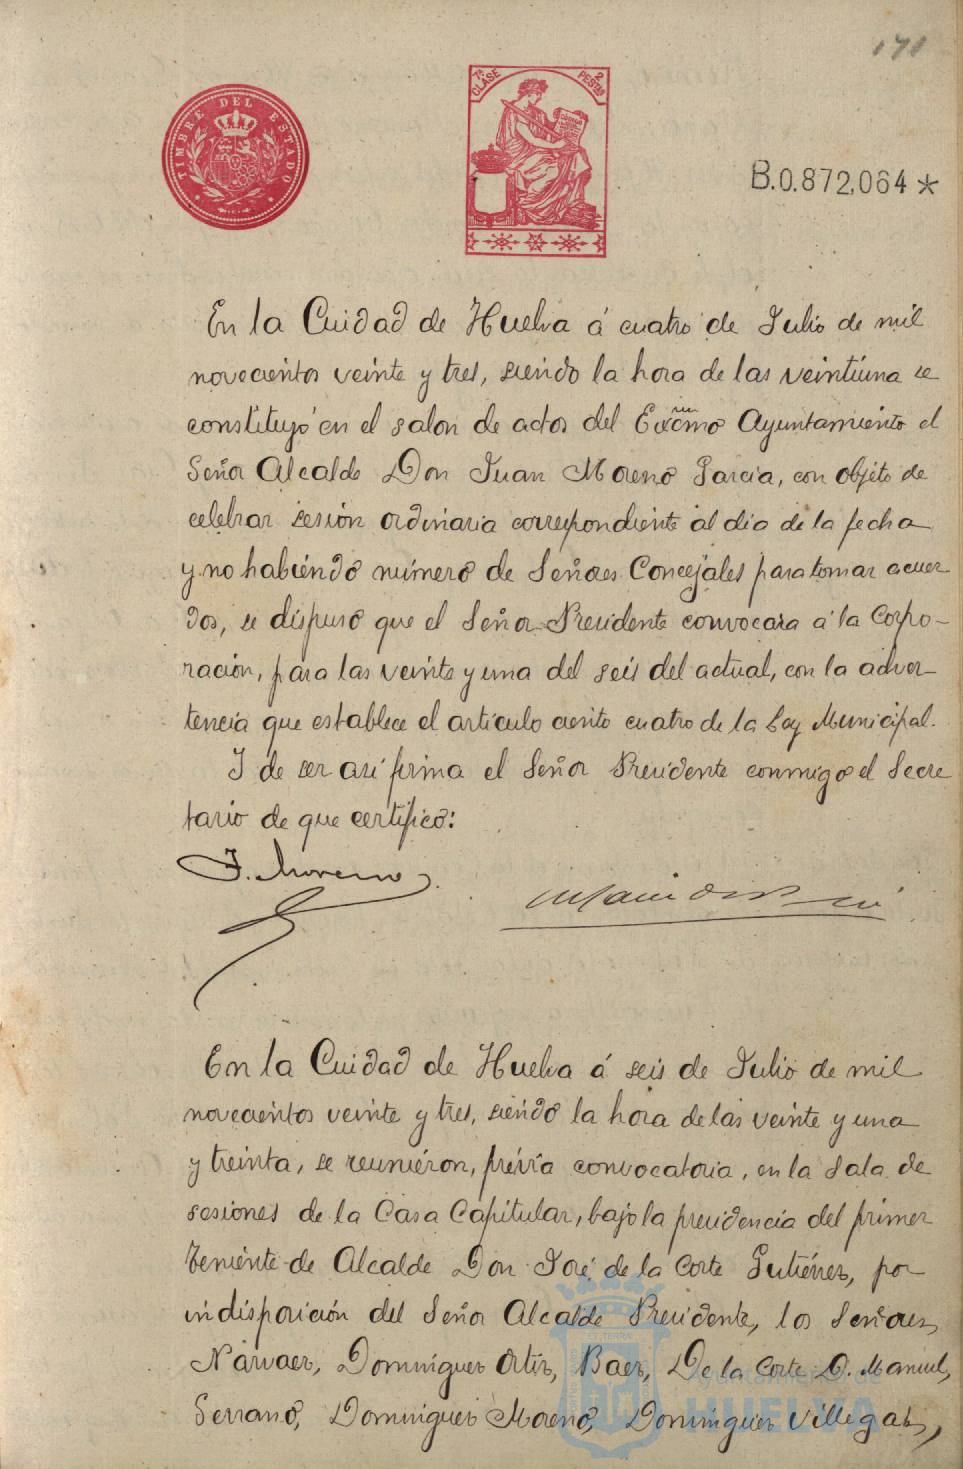 171
TIMBRE DEL ESTADO
7ª CLASE 2 PESETAS
B.0.872,064*
En la Cuidad de Huelva á cuatro de Julio de mil
novecientos veinte y tres, siendo la hora de las veintiuna se
constituyó en el salon de actos del Excmo Ayuntamiento el
Señor Alcalde Don Juan Moreno Garcia, con objeto de
celebrar sesión ordinaria correspondiente al dia de la fecha
y no habiendo número de Señores Concejales para tomar acuer
dos, se dispuso que el Señor Presidente convocara á la Corpo-
ración, para las veinte y una del seis del actual, con la adver-
tencia que establece el articulo ciento cuatro de la Ley Municipal.
Y de ser asi firma el Señor Presidente conmigo el Secre
tario de que certifico:
J. Moreno
En la Cuidad de Huelva á seis de Julio de mil
novecientos veinte y tres, siendo la hora de las veinte y una
y treinta, se reunieron, prévia convocatoria, en la Sala de
sesiones de la Casa Capitular, bajo la presidencia del primer
Teniente de Alcalde Don José de la Corte Gutiérrez, por
indisposición del Señor Alcalde Presidente, los Señores,
Narvaez, Dominguez Ortiz, Baez, De la Corte D. Manuel,
Serrano, Dominguez Moreno, Dominguez Villegas,
Ayuntamiento de
HUELVA